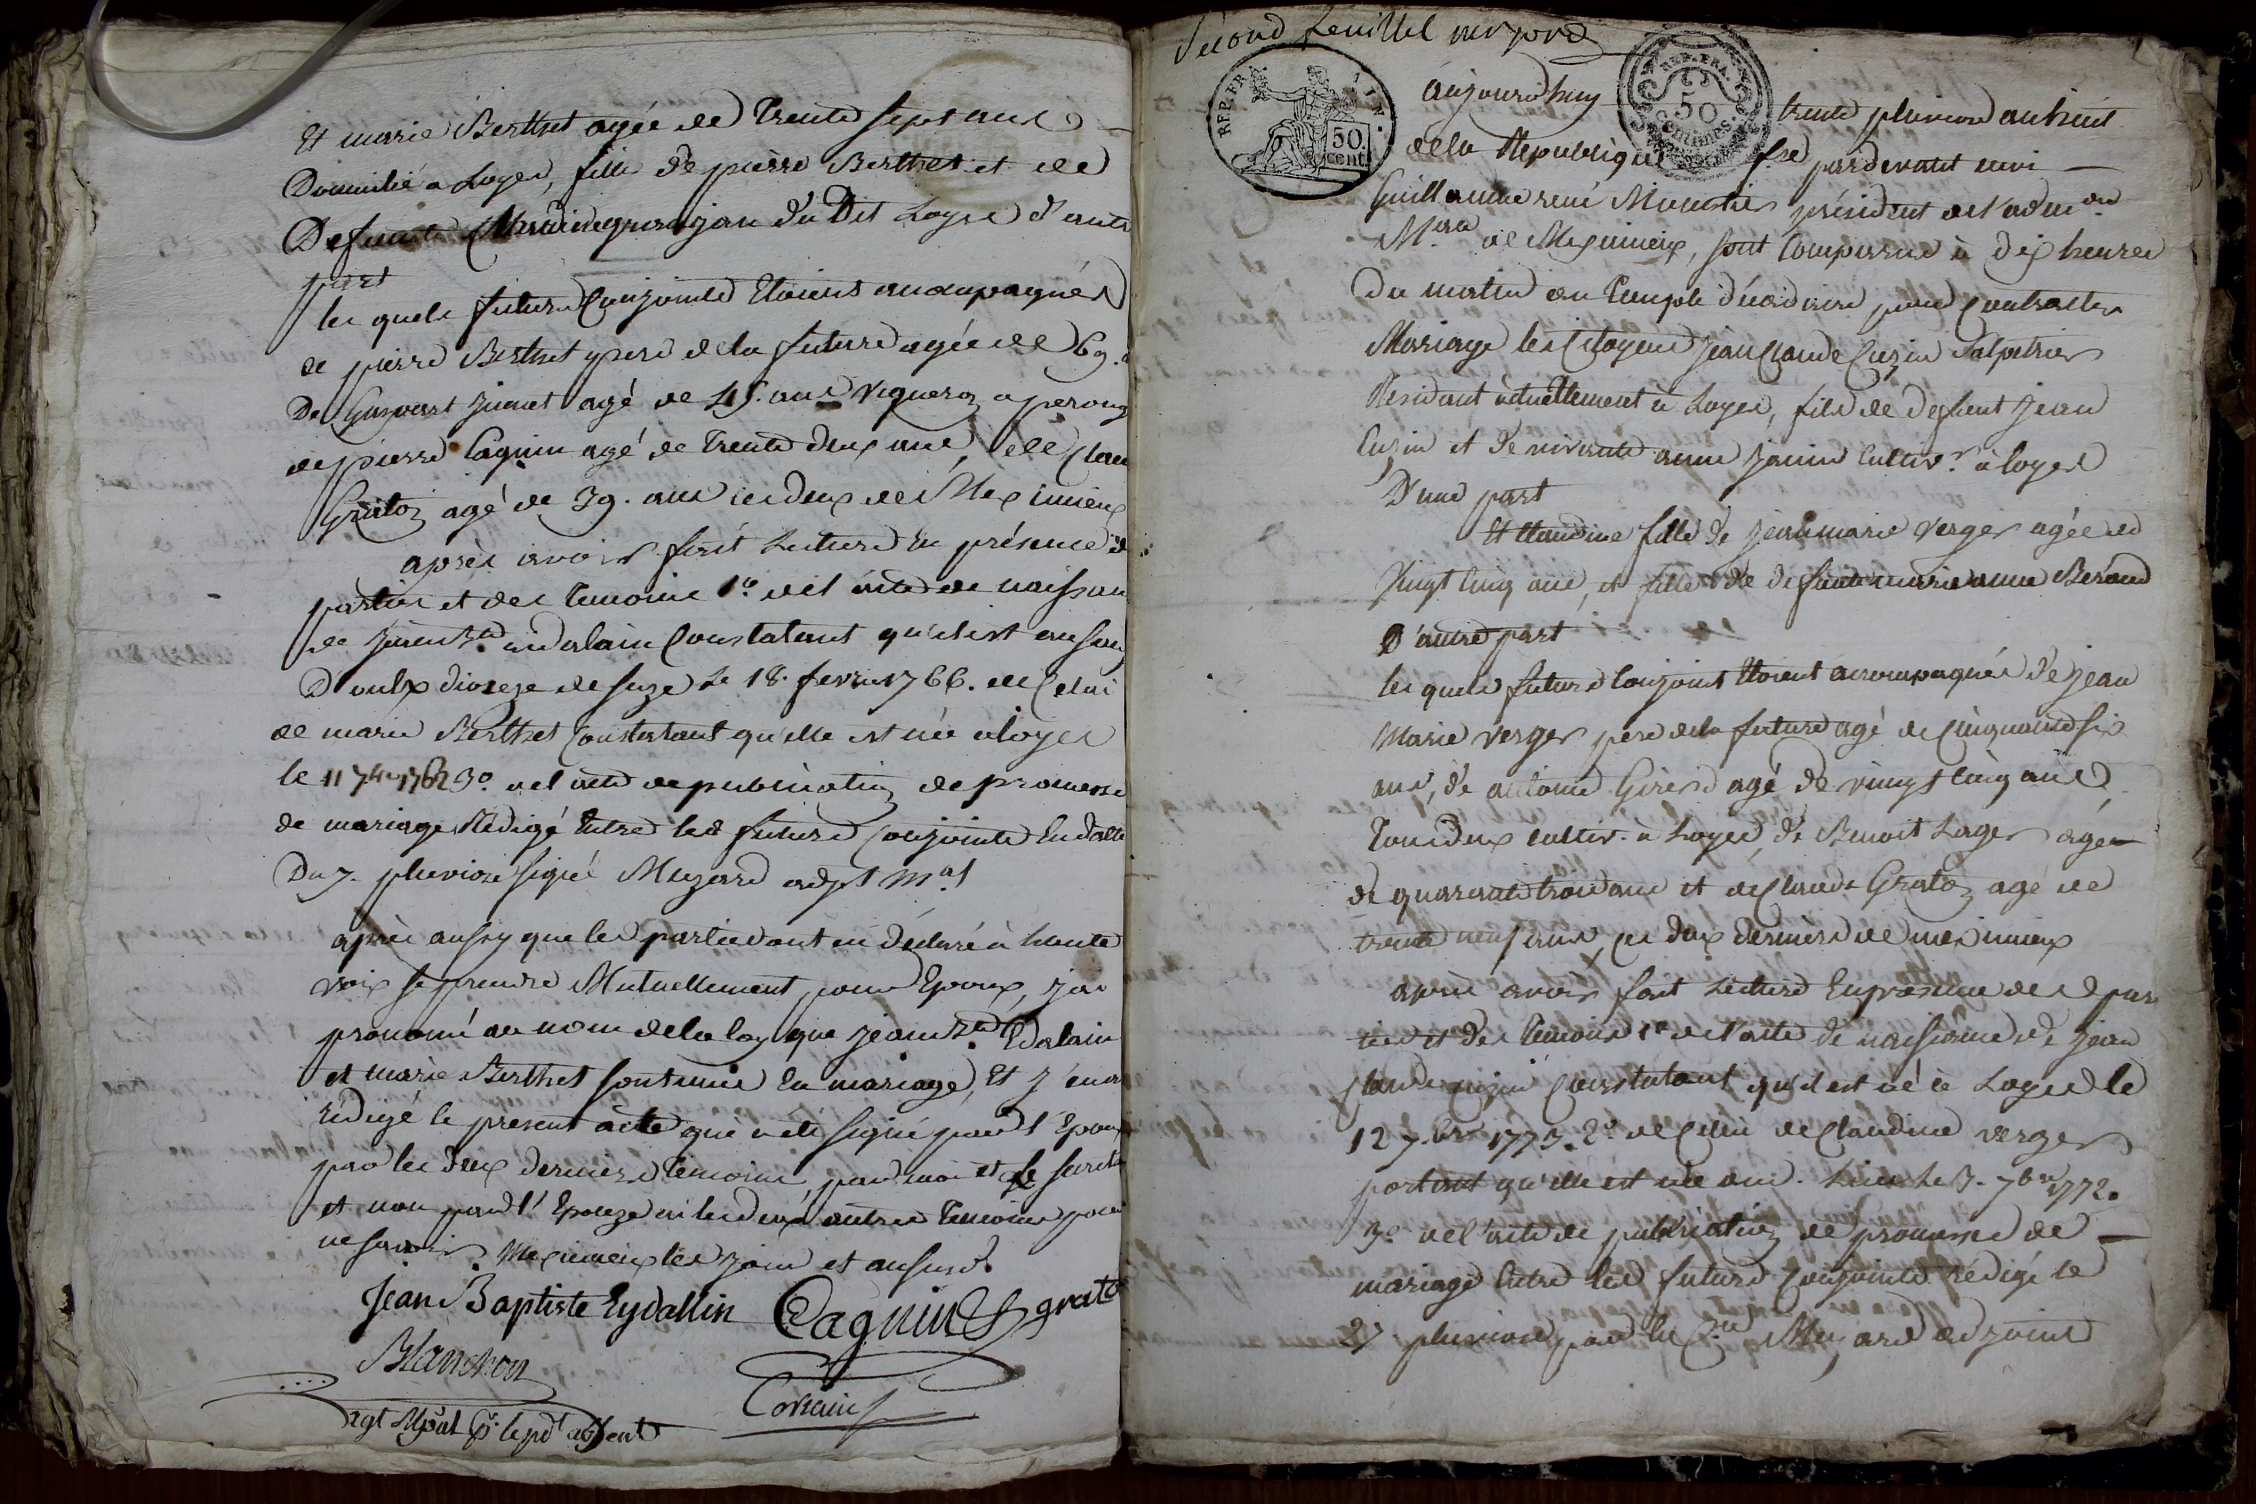 Et marie Berthet agée de Trente sept ans
Domiciliée a Loyes, fille de pierre Berthet et de
Defunte du Dit Loyes d'autre
part
les quels futurs Conjoints Etoient accompagnés
de pierre Berthet pere de la future agée de 69.
De Gaspart Juenet agé de 45. ans Vigneron a perouge
de pierre Cagnin agé de Trente deux ans, de Clau
Graton agé de 39. ans ces deux de Meximieux
après avoir fait Lecture En présence de
parties et des Temoins 1º de l'acte de naissan
de Jean Bte Constatant qu'il est
D'oulx dioceze de Suze Le 18. fevrier 1766. de Celui
de marie Berthet Constatant qu'elle est née a loyes
le 11 7bre 1762 3º de l'acte de publication de promesse
de mariage Rédigé Entre les futurs Conjoints En datte
Du 7. pluviose signé Muzard adjt Mal
après aussy que les parties ont eu Déclaré à haute
voix se prendre Mutuellement pour Epoux, j'ai
prononcé au nom de la loy que jean Bte Edalain
et marie Berthet sont unis En mariage, Et j'en ai
Rédigé le present acte qui a été signé par l'Epoux
par les deux derniers Temoins, par moi et le secret
et non par l'Epouze ni les deux autres Temoins pour
ne savoir. Meximieux les jour et an susd.
Jean Baptiste Eydallin Cagnin graton
Blanchon
agt Mpal pr le pdt absent
Second feuillet
REP. FRA. 50. cent.
REP. FRA. 50 Centimes.
aujourd'huy trente pluviose an huit
de la Republique fse pardevant moi
Guillaume rené président de l'admon
Male de Meximieux, sont Comparus à dix heures
Du matin au Temple décadaire pour Contracter
Mariage les Citoyens Jean Claude Cuzin Salpetrier
Résidant actuellement à Loyes, fils de defunt Jean
Cuzin et de vivante anne Janin Cultivr à loyes
D'une part
Et Claudine fille de Jean marie Verger agée de
Vingt Cinq ans, et fille de defunte marie anne Beraud
D'autre part
les quels futurs Conjoint Etoient accompagnés de Jean
Marie Verger pere de la future agé de Cinquante six
ans, de antoine Girerd agé de vingt Cinq ans
Tous deux cultiv. à Loyes, de Benoit Lager agé
de quarante trois ans et de Claude Graton agé de
trente neuf ans, ces deux derniers de meximieux
après avoir fait Lecture En présence des par
ties et des Temoins 1º de l'acte de naissance de Jean
Claude Cuzin Constatant qu'il est né à Loyes le
12 7bre 1773. 2º de Celui de Claudine Verger
portant qu'elle est née aud. Lieu Le 3. 7bre 1772.
3º de l'acte de publication de promesse de
mariage Entre les futurs Conjoints rédigé le
27 pluviose par le Cen Muzard adjoint